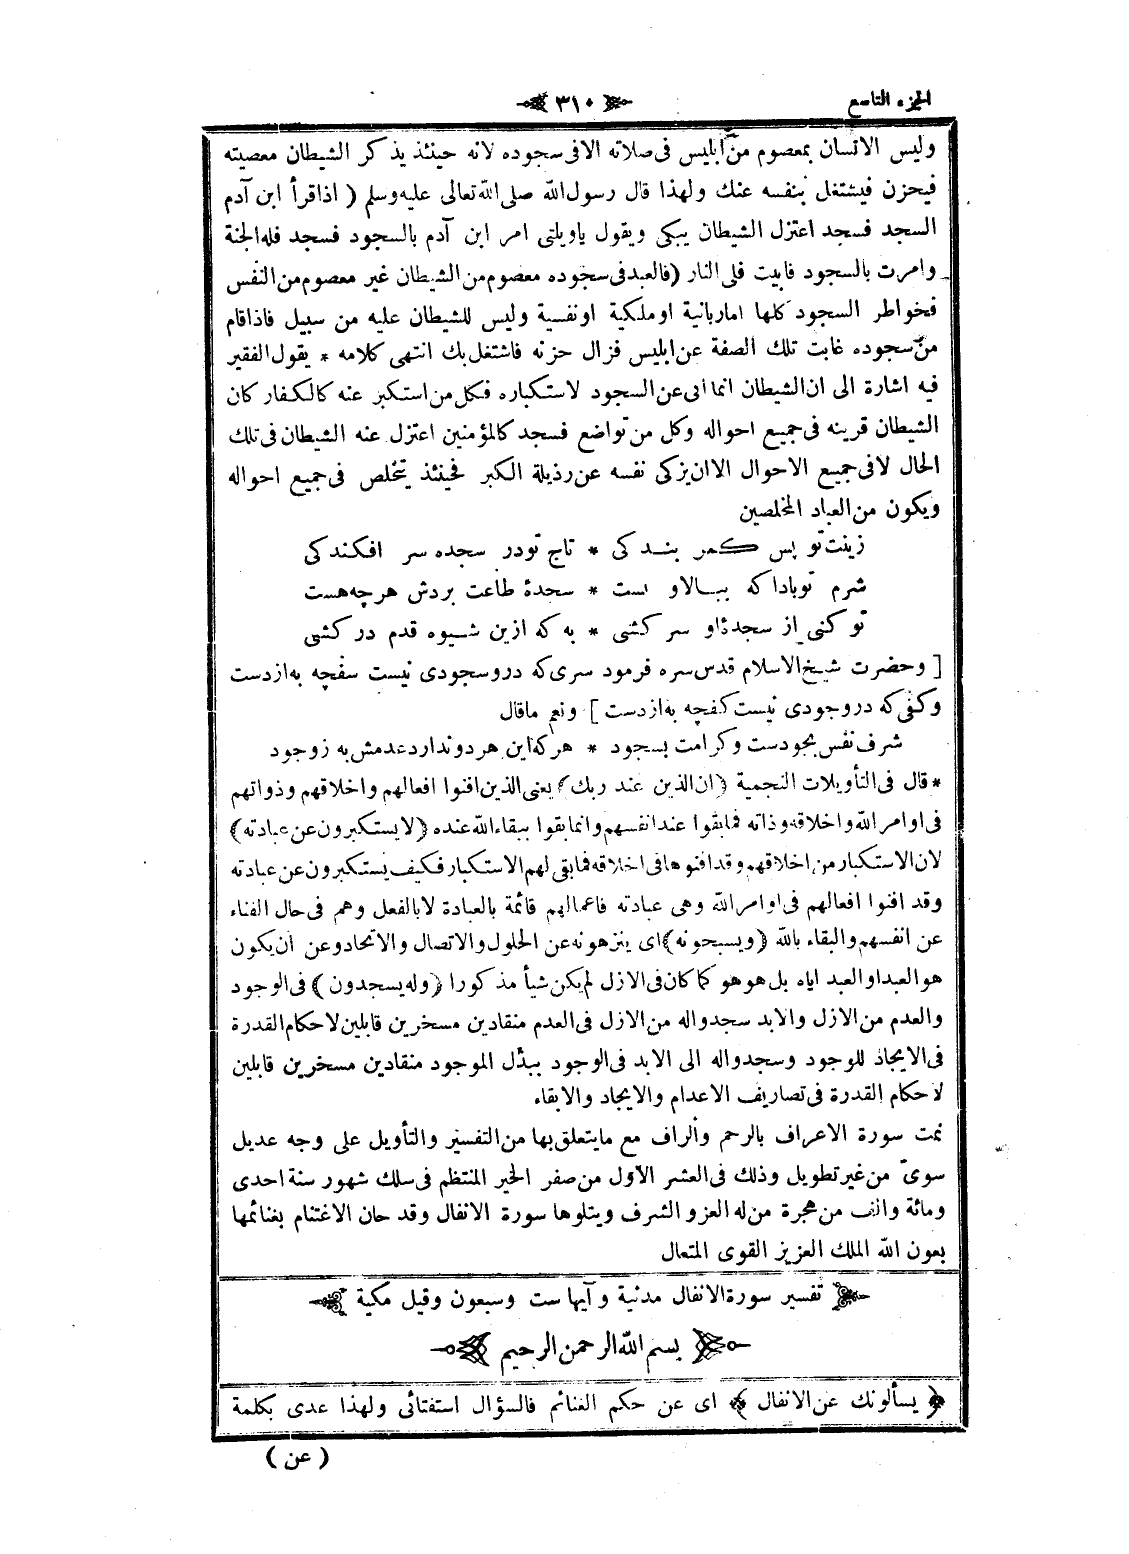 الجزء التاسع
٣١٠
وليس الانسان بمعصوم من ابليس فى صلاته الا فى سجوده لانه حينئذ يذكر الشيطان معصيته
فيحزن فيشتغل بنفسه عنك ولهذا قال رسول الله صلى الله تعالى عليه وسلم ( اذا قرأ ابن آدم
السجد فسجد اعتزل الشيطان يبكى ويقول ياويلتى امر ابن آدم بالسجود فسجد فله الجنة
وامرت بالسجود فابيت فلى النار (فالعبد فى سجوده معصوم من الشيطان غير معصوم من النفس
فخواطر السجود كلها اما ربانية او ملكية او نفسية وليس للشيطان عليه من سبيل فاذا قام
من سجوده غابت تلك الصفة عن ابليس فزال حزنه فاشتغل بك انتهى كلامه * يقول الفقير
فيه اشارة الى ان الشيطان انما ابى عن السجود لاستكباره فكل من استكبر عنه كالكفار كان
الشيطان قرينه فى جميع احواله وكل من تواضع فسجد كالمؤمنين اعتزل عنه الشيطان فى تلك
الحال لا فى جميع الاحوال الا ان يزكى نفسه عن رذيلة الكبر فحينئذ يتخلص فى جميع احواله
ويكون من العباد المخلصين
زينت تو پس كمر بندكى * تاج تو در سجده سر افكندكى
شرم تو باداكه ببالا و است * سجدۀ طاعت بردش هرچه هست
تو كنى از سجدۀ او سر كشى * به كه ازين شيوه قدم در كشى
[ وحضرت شيخ الاسلام قدس سره فرمود سرى كه در و سجودى نيست سفچه به از دست
وكفى كه در و جودى نيست كفچه به از دست ] ونعم ما قال
شرف نفس بجودست وكرامت بسجود * هركه اين هر دو ندارد عدمش به ز وجود
* قال فى التأويلات النجمية ﴿ ان الذين عند ربك ﴾ يعنى الذين افنوا افعالهم واخلاقهم وذواتهم
فى اوامر الله واخلاقه وذاته فما بقوا عند انفسهم وانما بقوا ببقاء الله عنده ﴿ لا يستكبرون عن عبادته ﴾
لان الاستكبار من اخلاقهم وقد افنوها فى اخلاقه فما بقى لهم الاستكبار فكيف يستكبرون عن عبادته
وقد افنوا افعالهم فى اوامر الله وهى عبادته فاعمالهم قائمة بالعبادة لا بالفعل وهم فى حال الفناء
عن انفسهم والبقاء بالله ﴿ ويسبحونه ﴾ اى ينزهونه عن الحلول والاتصال والاتحاد وعن ان يكون
هو العبد او العبد اياه بل هو هو كما كان فى الازل لم يكن شيأ مذكورا ﴿ وله يسجدون ﴾ فى الوجود
والعدم من الازل والابد سجدوا له من الازل فى العدم منقادين مسخرين قابلين لاحكام القدرة
فى الايجاد للوجود وسجدوا له الى الابد فى الوجود ببذل الموجود منقادين مسخرين قابلين
لاحكام القدرة فى تصاريف الاعدام والايجاد والابقاء
تمت سورة الاعراف بالرحم والراف مع ما يتعلق بها من التفسير والتأويل على وجه عديل
سوىّ من غير تطويل وذلك فى العشر الاول من صفر الخير المنتظم فى سلك شهور سنة احدى
ومائة والف من هجرة من له العز والشرف ويتلوها سورة الانفال وقد حان الاغتنام بغنائمها
بعون الله الملك العزيز القوى المتعال
تفسير سورة الانفال مدنية وآيها ست وسبعون وقيل مكية
بسم الله الرحمن الرحيم
﴿ يسألونك عن الانفال ﴾ اى عن حكم الغنائم فالسؤال استفتائى ولهذا عدى بكلمة
( عن )